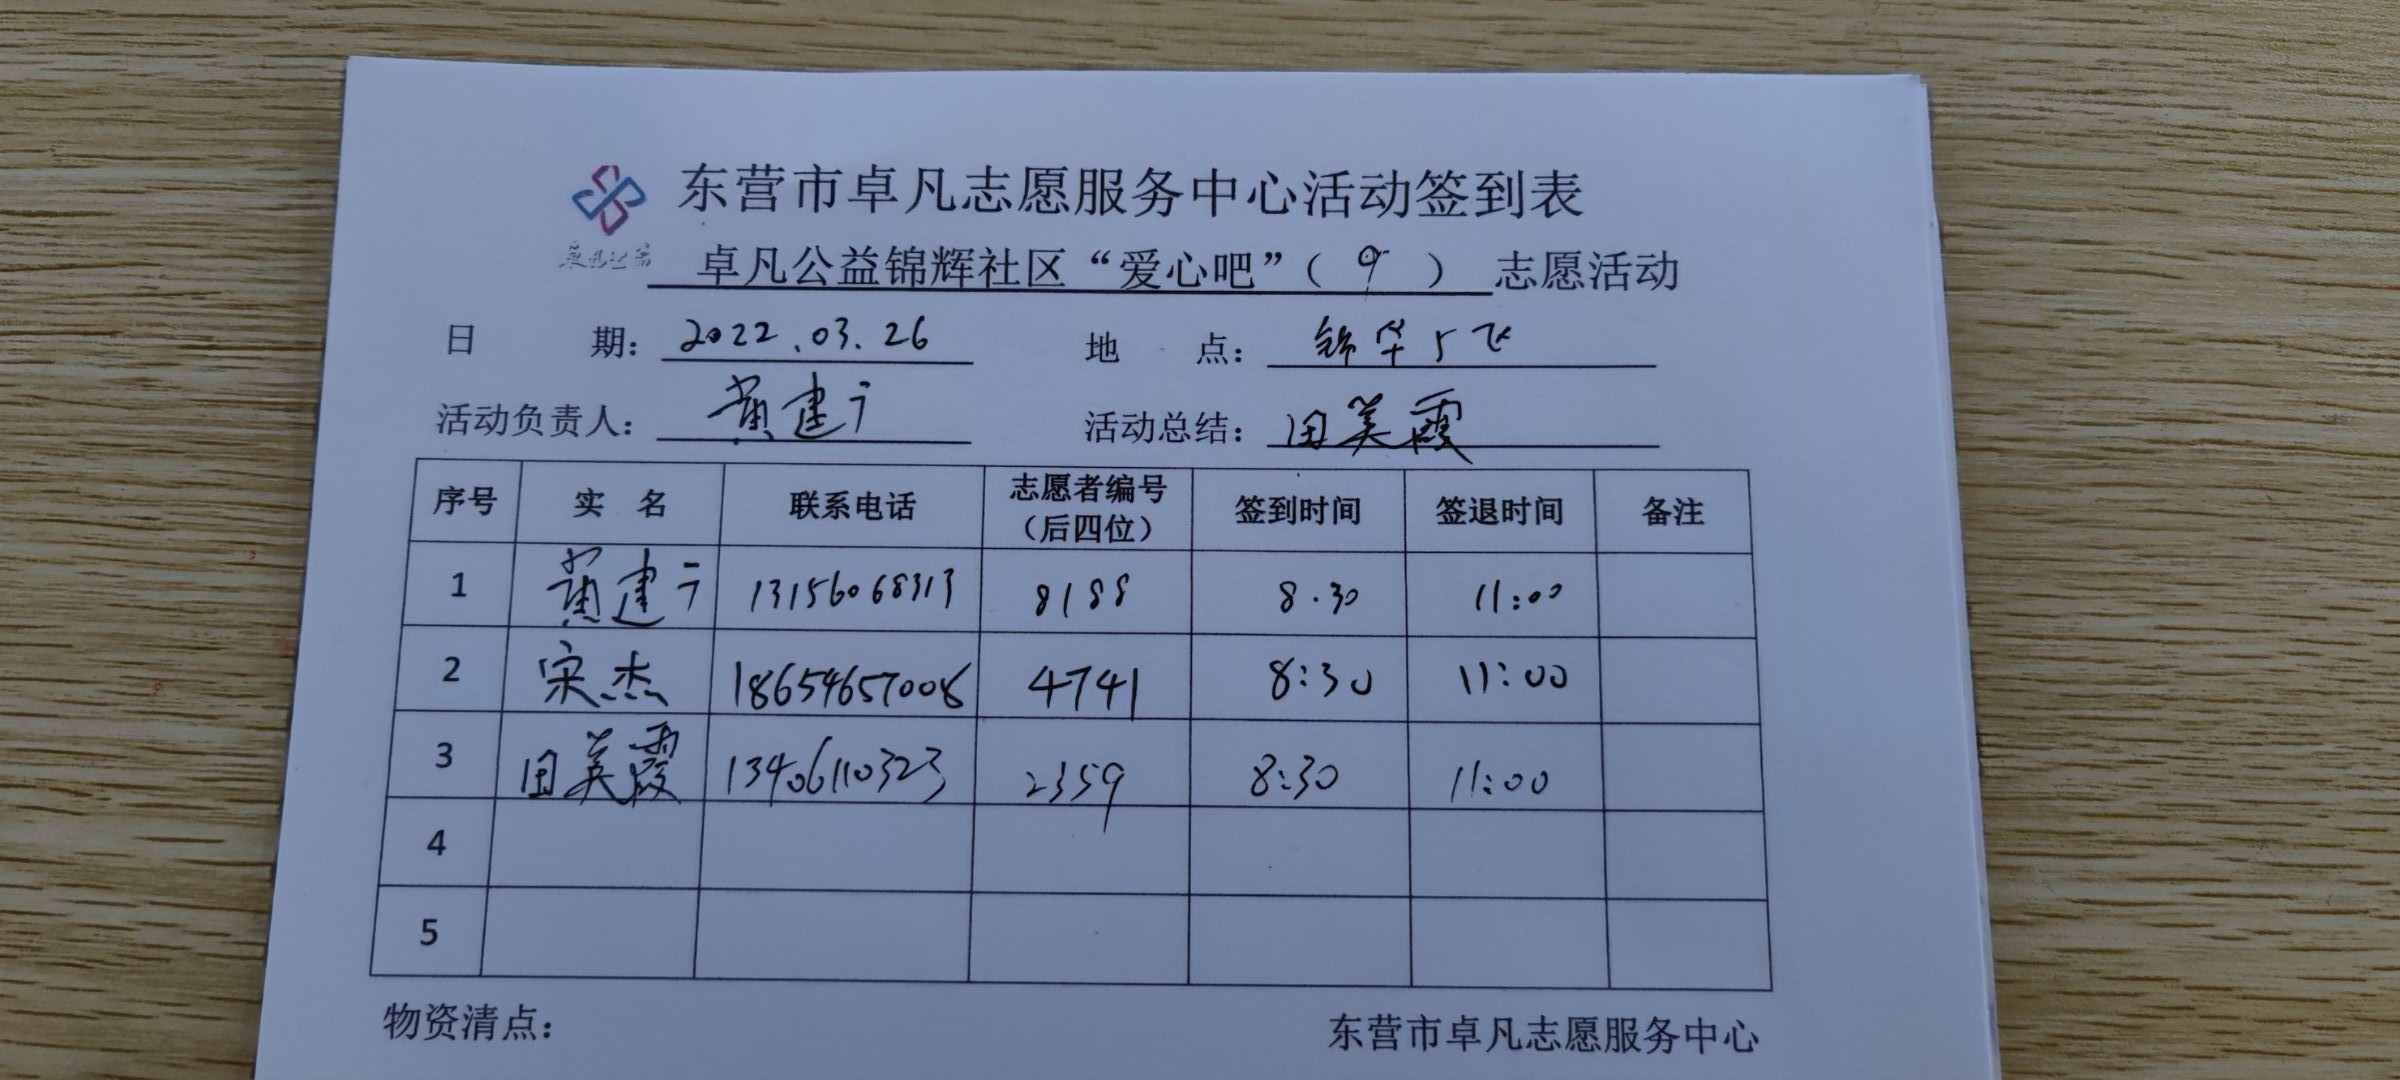 东营市卓凡志愿服务中心活动签到表
卓凡公益
卓凡公益锦辉社区“爱心吧”（9）志愿活动
日 期：2022.03.26 地 点：锦华
活动负责人：黄建广 活动总结：田美霞
序号 实 名 联系电话 志愿者编号（后四位） 签到时间 签退时间 备注
1 黄建广 13156068313 8188 8.30 11:00
2 宋杰 18654657008 4741 8:30 11:00
3 田美霞 13406110323 2359 8:30 11:00
4
5
物资清点： 东营市卓凡志愿服务中心